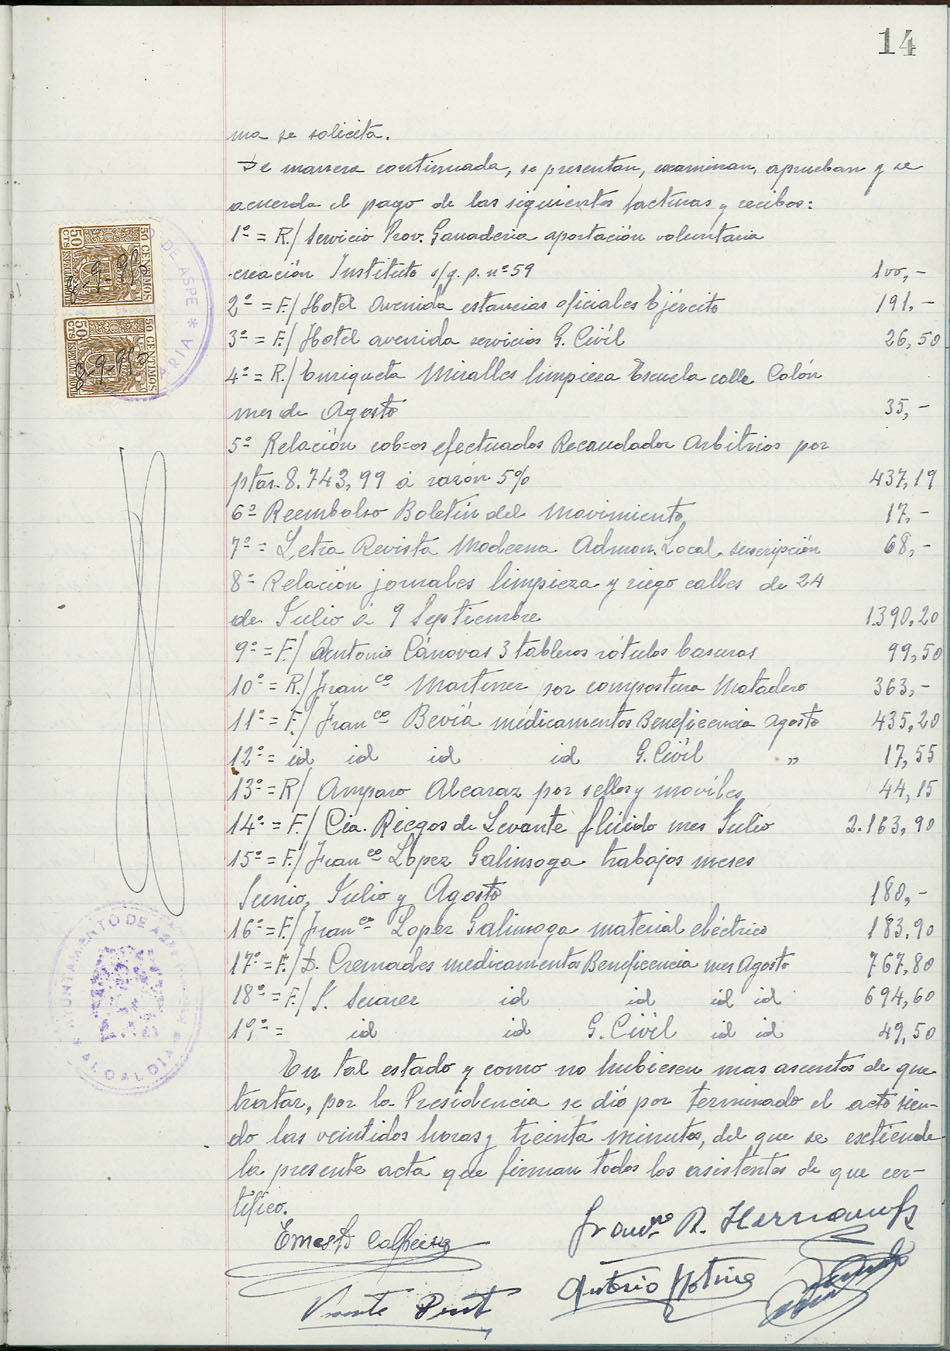 14
ma se solicita.
De manera continuada, se presentan, examinan, aprueban y se
acuerda el pago de las siguientes facturas y recibos:
1º = R./ Servicio Prov. Ganaderia aportación voluntaria
creación Instituto s/g. p. nº 59 100,-
2º = F./ Hotel Avenida estancias oficiales Ejército 191,-
3º = F./ Hotel avenida servicios G. Civil 26,50
4º = R./ Enriqueta Miralles limpieza Escuela calle Colón
mes de Agosto 35,-
5º Relación cobros efectuados Recaudador Arbitrios por
ptas. 8.743,99 á razón 5% 437,19
6º Reembolso Boletín del Movimiento 17,-
7º = Letra Revista Moderna Admon. Local, suscripción 68,-
8º Relación jornales limpieza y riego calles de 24
de Julio á 9 Septiembre 1.390,20
9º = F./ Antonio Cánovas 3 tableros rótulos basuras 99,50
10º = R./ Franco Martinez por compostura Matadero 363,-
11º = F./ Franco Beviá medicamentos Beneficencia agosto 435,20
12º = id id id id G. Civil " 17,55
13º = R/ Amparo Alcaraz por sellos y moviles, 44,15
14º = F./ Cia. Riegos de Levante flúido mes Julio 2.163,90
15º = F./ Franco López Galinsoga trabajos meses
Junio, Julio y Agosto 180,-
16º = F./ Franco Lopez Galinsoga material eléctrico 183,90
17º = F./ D. Cremades medicamentos Beneficencia mes Agosto 767,80
18º = F./ S. Suarez id id id id 694,60
19º = id id G. Civil id id 49,50
En tal estado y como no hubiesen mas asuntos de que
tratar, por la Presidencia se dió por terminado el acto sien-
do las veintidos horas y treinta minutos, del que se extiende
la presente acta que firman todos los asistentes de que cer-
tifico.
50 CENTIMOS
50 CTS
50 CENTIMOS
50 CTS
DE ASPE *
ARIA
AYUNTAMIENTO DE ASPE
* ALCALDIA *
Ernesto
R. Hernandez
Antonio
Vicente